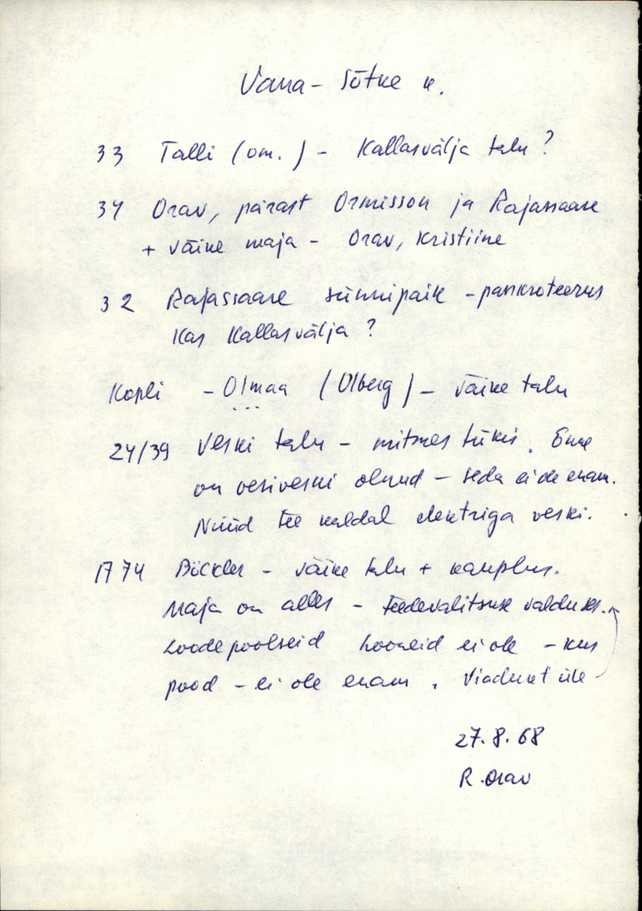 Vana-Sõtke k.
33 Talli (om.) - Kallasvälja talu?
34 Orav, pärast Ormisson ja Rajassaare
+ väike maja - Orav, Kristiine
32 Rajassaare sünnipaik - pankroteerus
Kas Kallasvälja?
Kopli - Olmaa (Olberg) - väike talu
24/39 Veski talu - mitmes tükis. Enne
on vesiveski olnud - seda ei ole enam.
Nüüd tee kaldal elektriga veski.
1774 Böckler - väike talu + kauplus.
Maja on alles - Teedevalitsuse valduses.
Loodepoolseid hooneid ei ole - kus
pood - ei ole enam. Viadukt üle
27.8.68
R. Orav